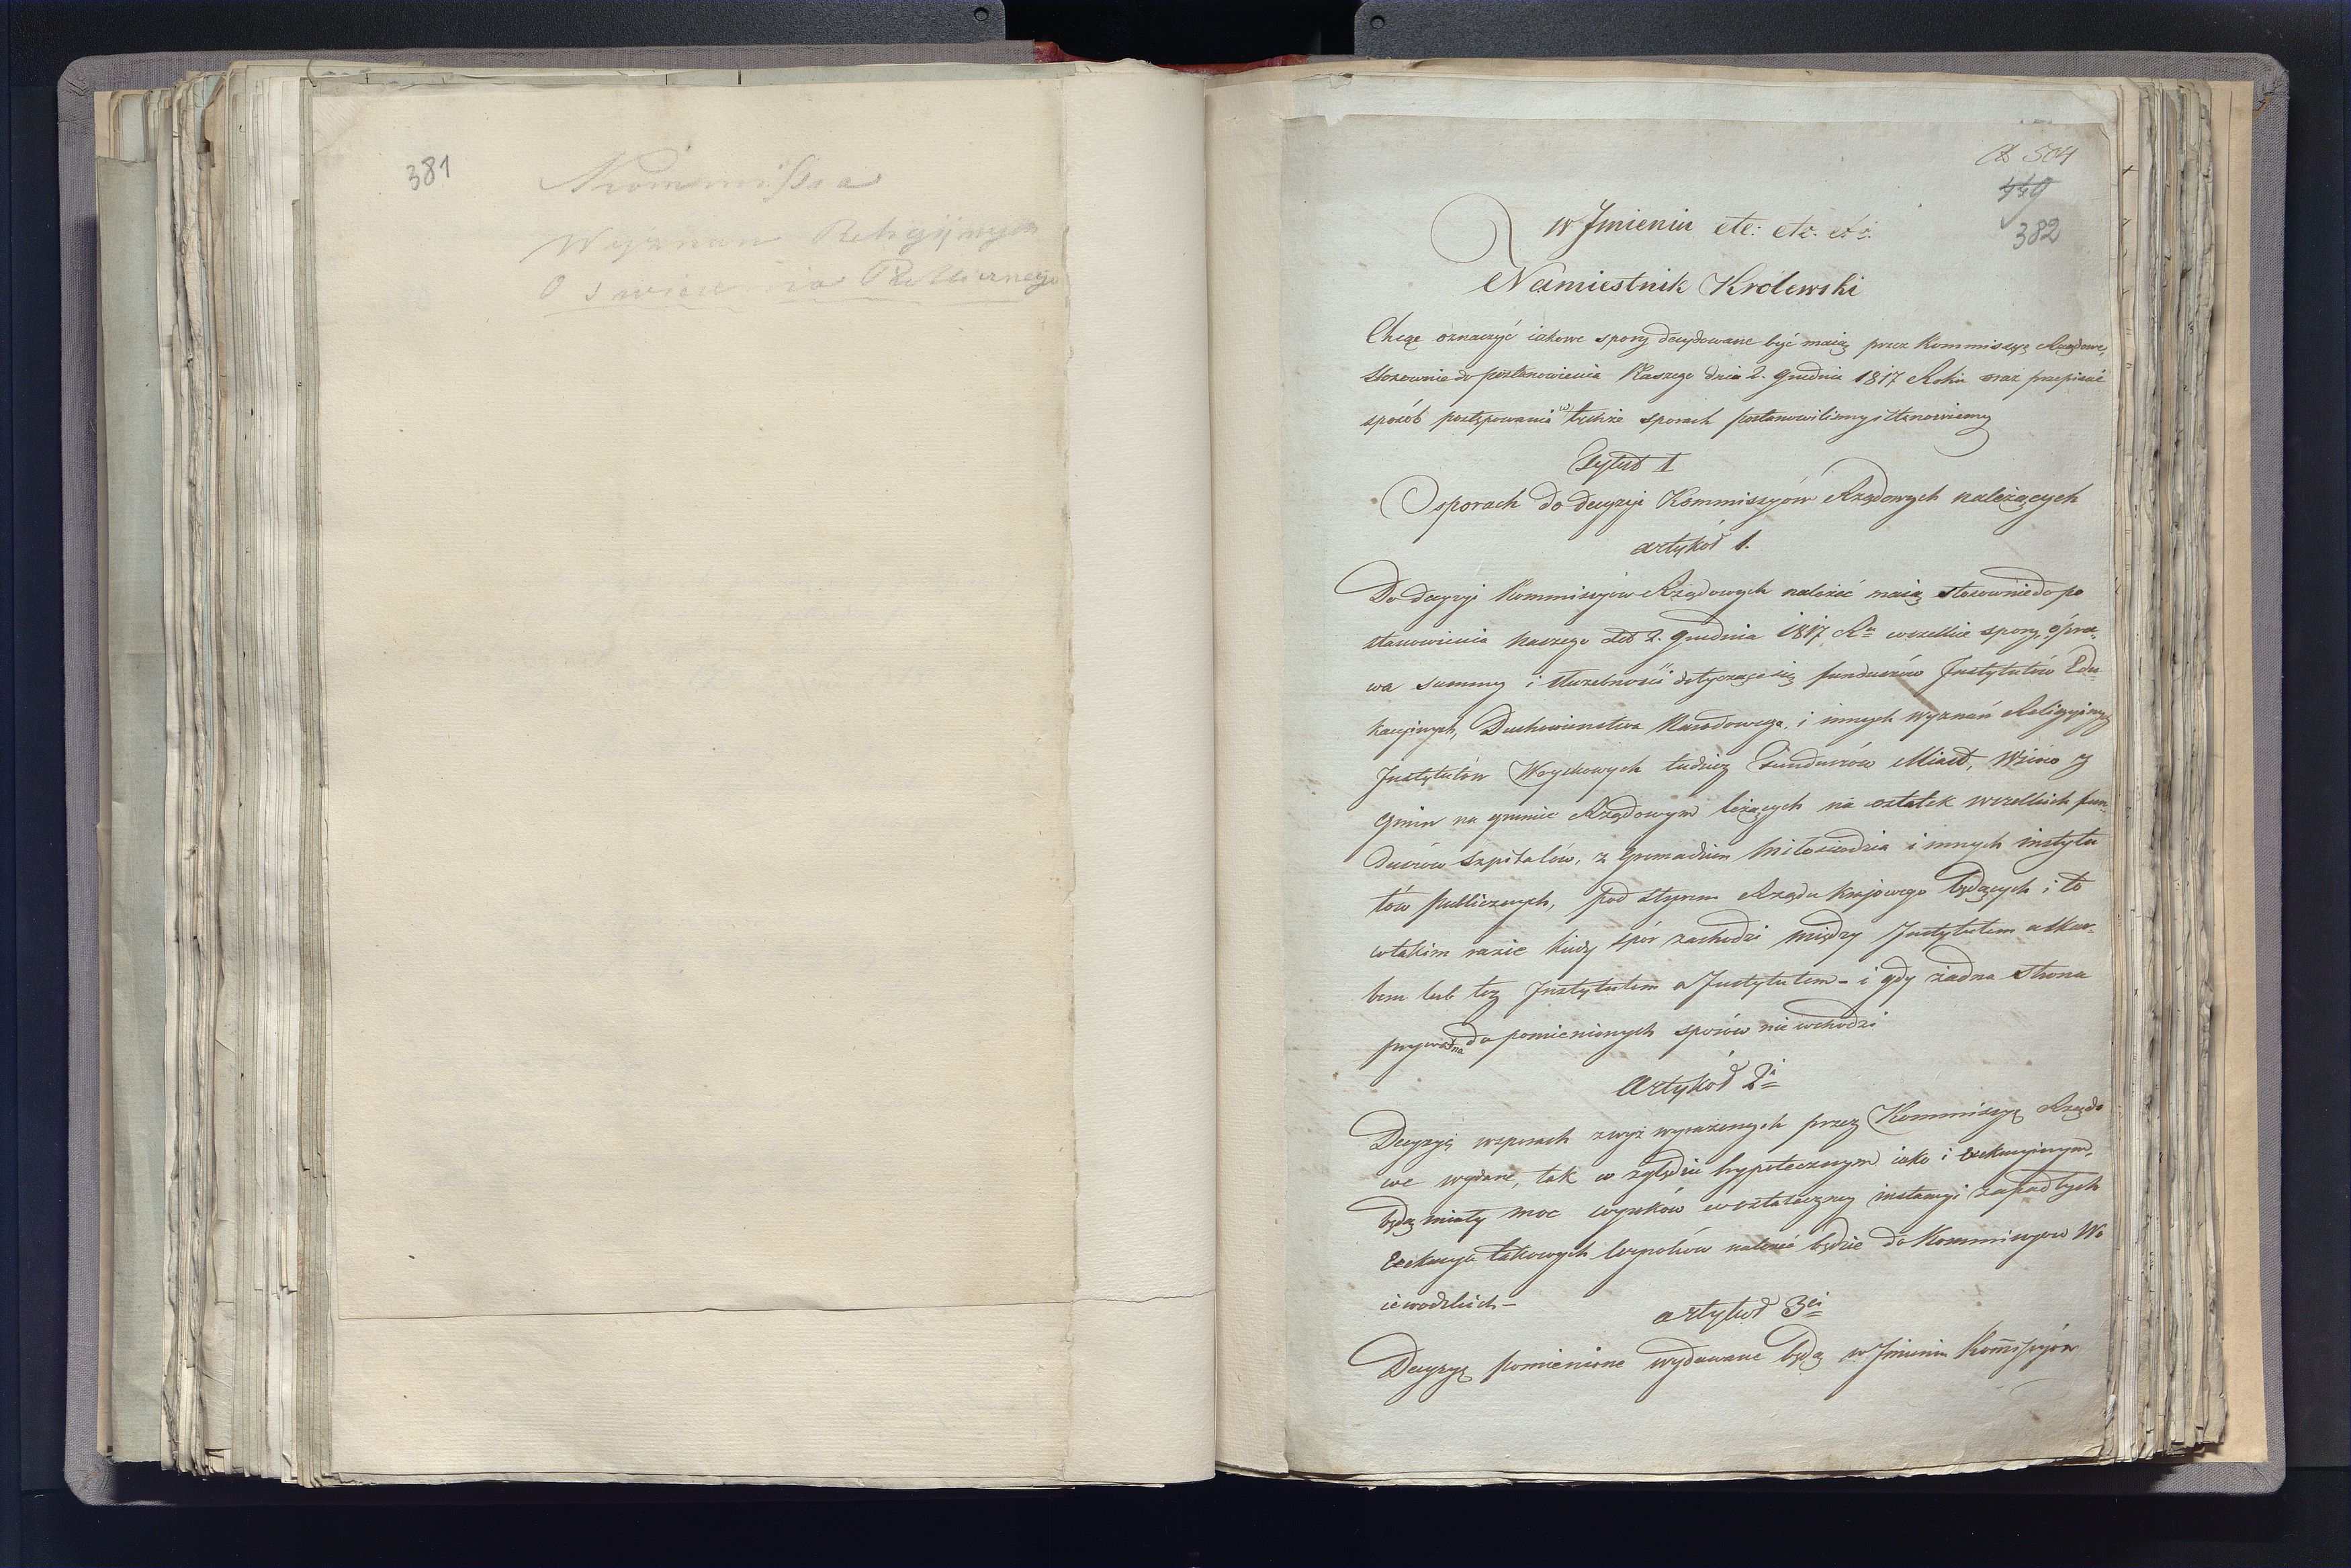 381
Kommissia
Wyznan Religijnych
Oswiecenia Publicznego
504
440
382
w Jmieniu etc: etc: etc:
Namiestnik Królewski
Chcąc oznaczyć iakowe spory decydowane być maią przez Kommissyą Rządowe,
Stosownie do postanowienia Naszego dnia 2. Grudnia 1817 Roku oraz przepisać
sposób postępowania w tychże sporach postanowiliśmy i stanowiemy
Tytuł I
O sporach do decyzji Kommissyów Rządowych należących
artykół 1.
Do decyzji Kommissyów Rządowych należeć maią stosownie do po
stanowienia Naszego dd 2. Grudnia 1817 Ru wszelkie spory, o pra-
wa summy i służebności dotyczące się funduszów Instytutów Edu
kacyinych, Duchowienstwa Narodowego i innych wyznań Religijnych
Instytutów Woyskowych tudzież Funduszów Miast, Wsiow
Gmin na gruncie Rządowym leżących na ostatek wszelkich fun-
duszów Szpitalów, zgromadzen Miłosierdzia i innych instytu
tów publicznych, pod sterem Rządu Krajowego będących i to
w takim razie kiedy spór zachodzi między Instytutem a Skar-
bem lub też Instytutem a Instytutem - i gdy żadna strona
prywatna do pomienionych sporów nie wchodzi
Artykół 2i
Decyzyę w sporach zwyż wyrażonych przez Kommissyą Rządo
we wydane, tak w zględzie hypotecznym iako i exekucyinym,
będą miały moc wyroków w ostateczney instancyi zapadłych
Exekucya takowych wyroków należeć będzie do Kommissyow Wo
iewodzkich -
artykuł 3ci
Decyzye pomienione wydawane będą w Jmieniu Kom̄issyów